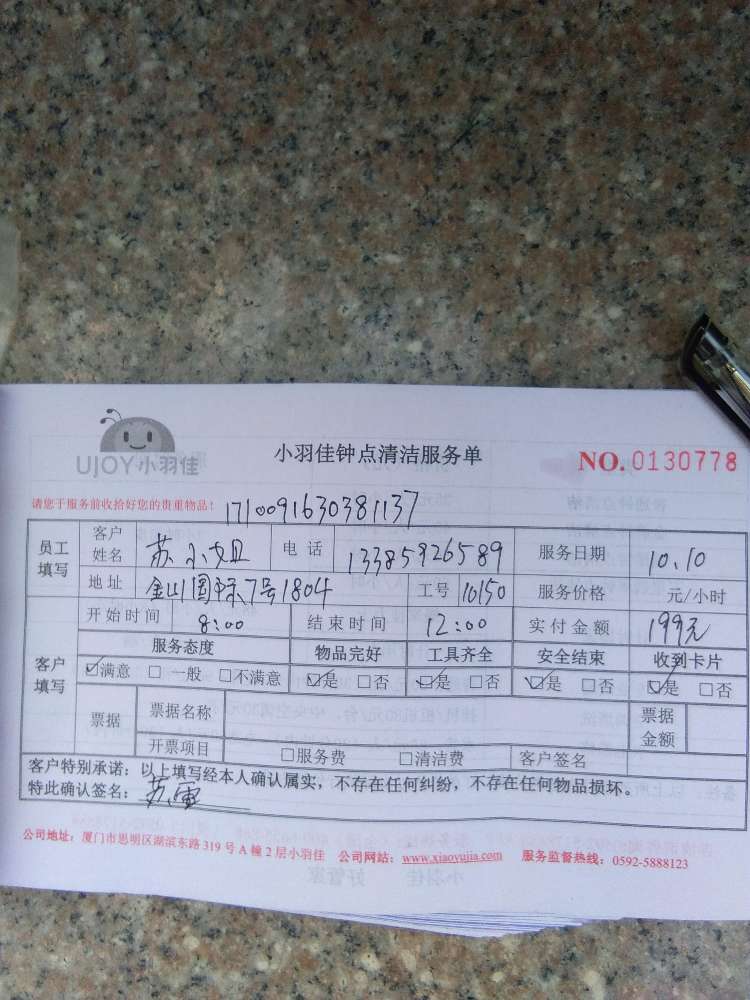 UJOY小羽佳
小羽佳钟点清洁服务单
NO. 0130778
请您于服务前收拾好您的贵重物品！ 171009163038 1137
员工填写 客户姓名 苏小姐 电话 13385926589 服务日期 10.10
地址 金山国际7号1804 工号 10150 服务价格 元/小时
客户填写 开始时间 8:00 结束时间 12:00 实付金额 199元
服务态度 物品完好 工具齐全 安全结束 收到卡片
☑满意 □一般 □不满意 ☑是 □否 ☑是 □否 ☑是 □否 ☑是 □否
票据 票据名称 票据金额
开票项目 □服务费 □清洁费 客户签名
客户特别承诺：以上填写经本人确认属实，不存在任何纠纷，不存在任何物品损坏。
特此确认签名：苏
公司地址：厦门市思明区湖滨东路319号A幢2层小羽佳 公司网站：www.xiaoyujia.com 服务监督热线：0592-5888123